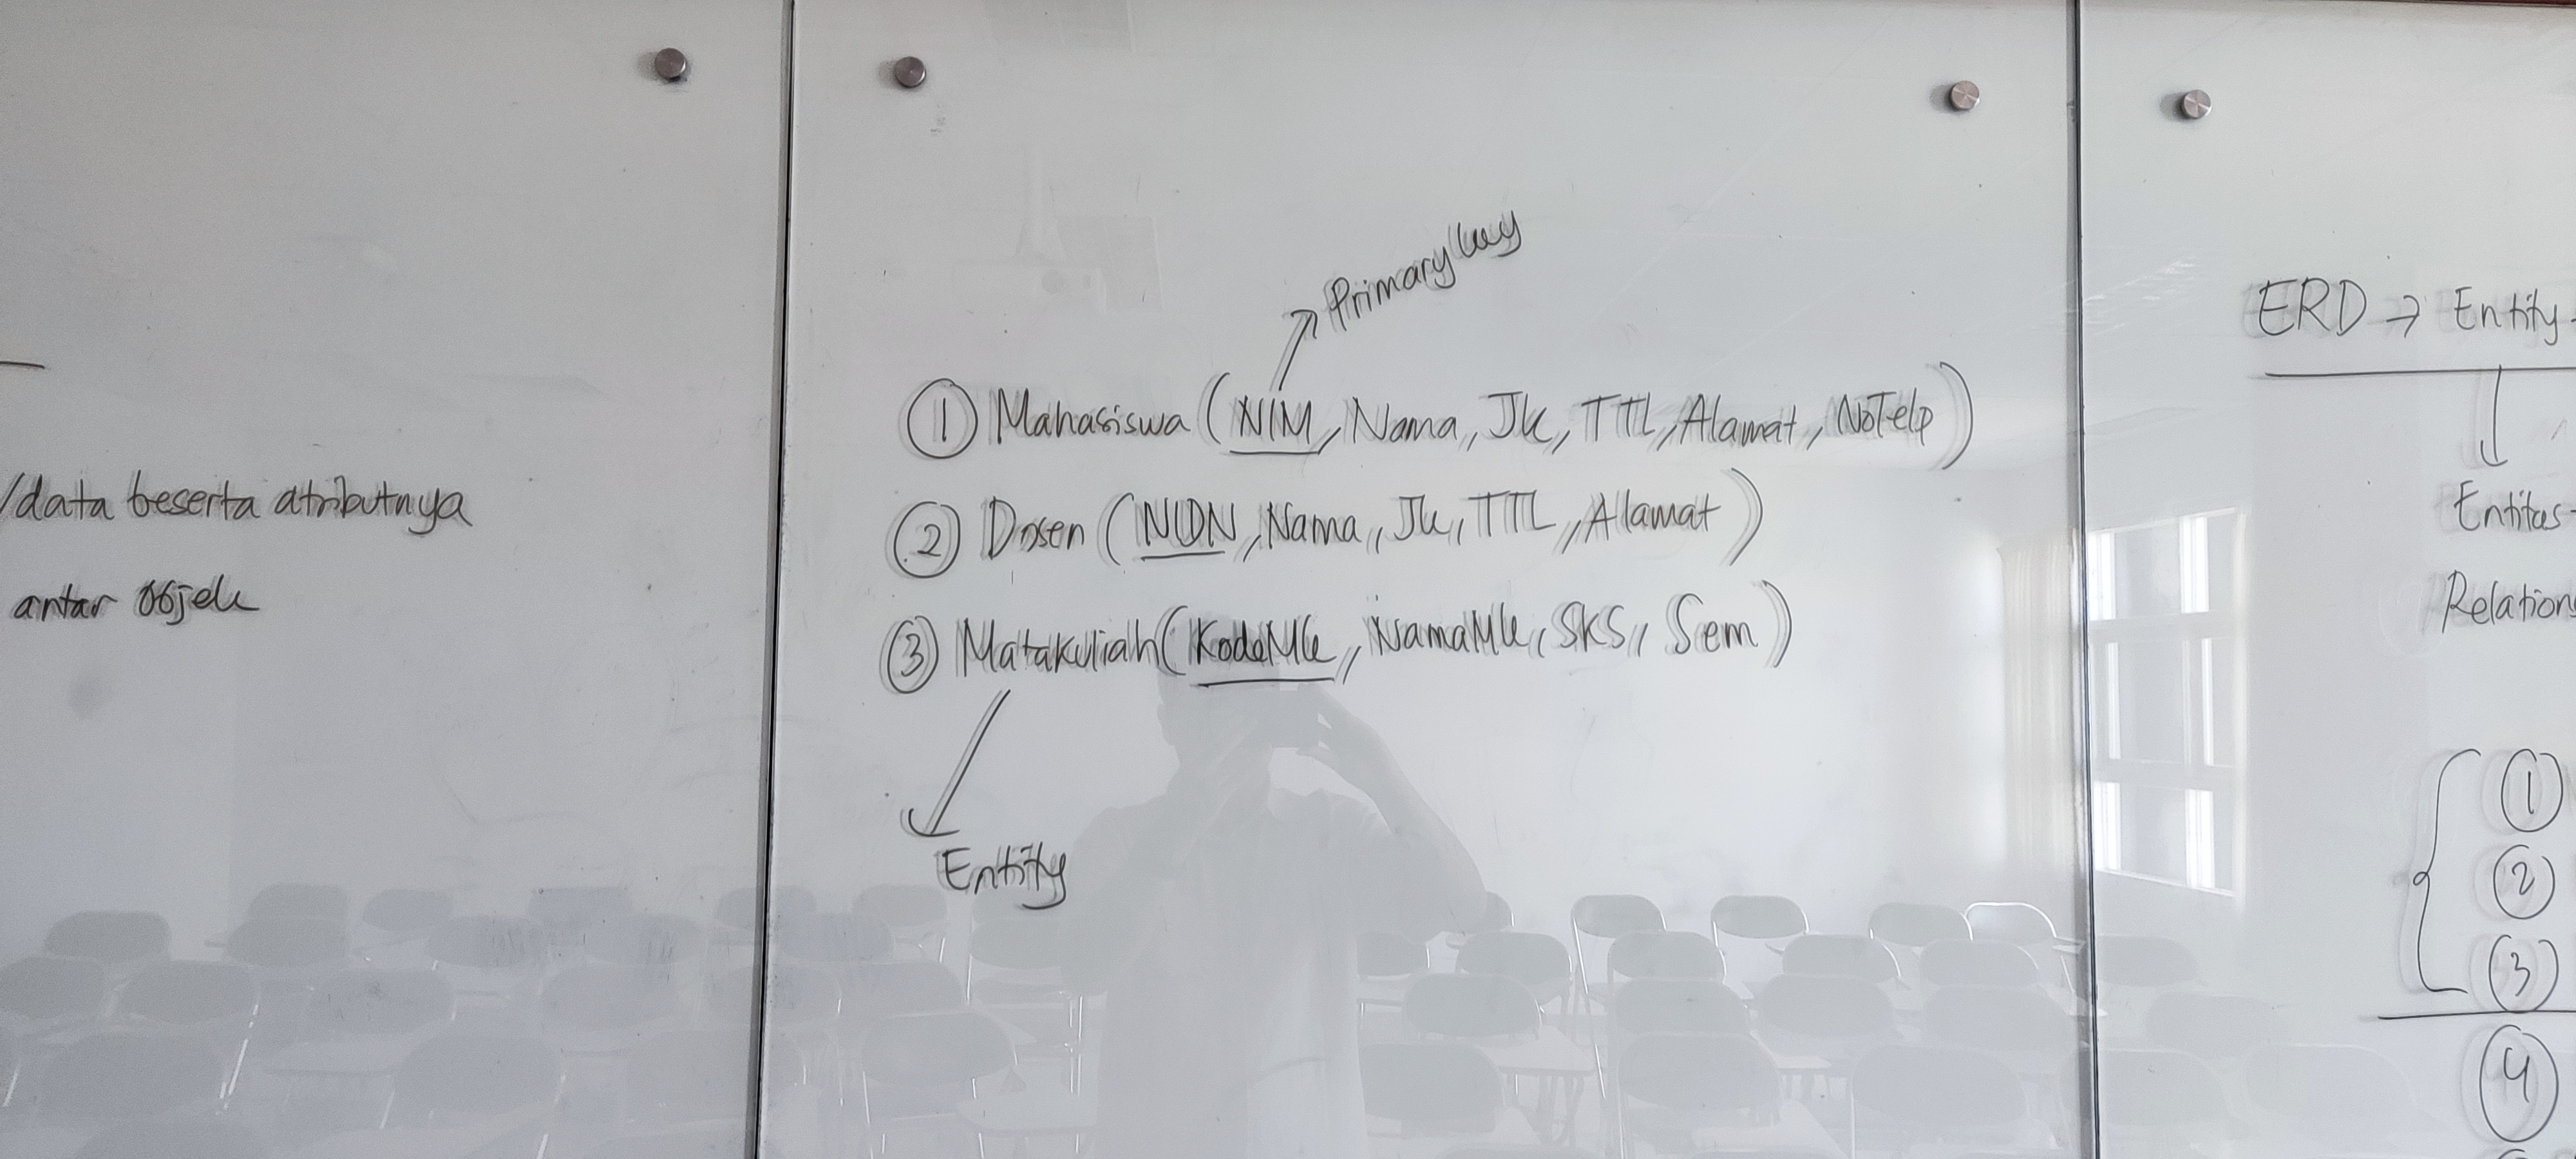 /data beserta atributnya
antar objek
Primary key
① Mahasiswa (NIM, Nama, Jk, TTL, Alamat, NoTelp)
② Dosen (NIDN, Nama, Jk, TTL, Alamat)
③ Matakuliah (KodeMk, NamaMk, SKS, Sem)
Entity
ERD → Entity
Entitas
Relation
①
②
③
④